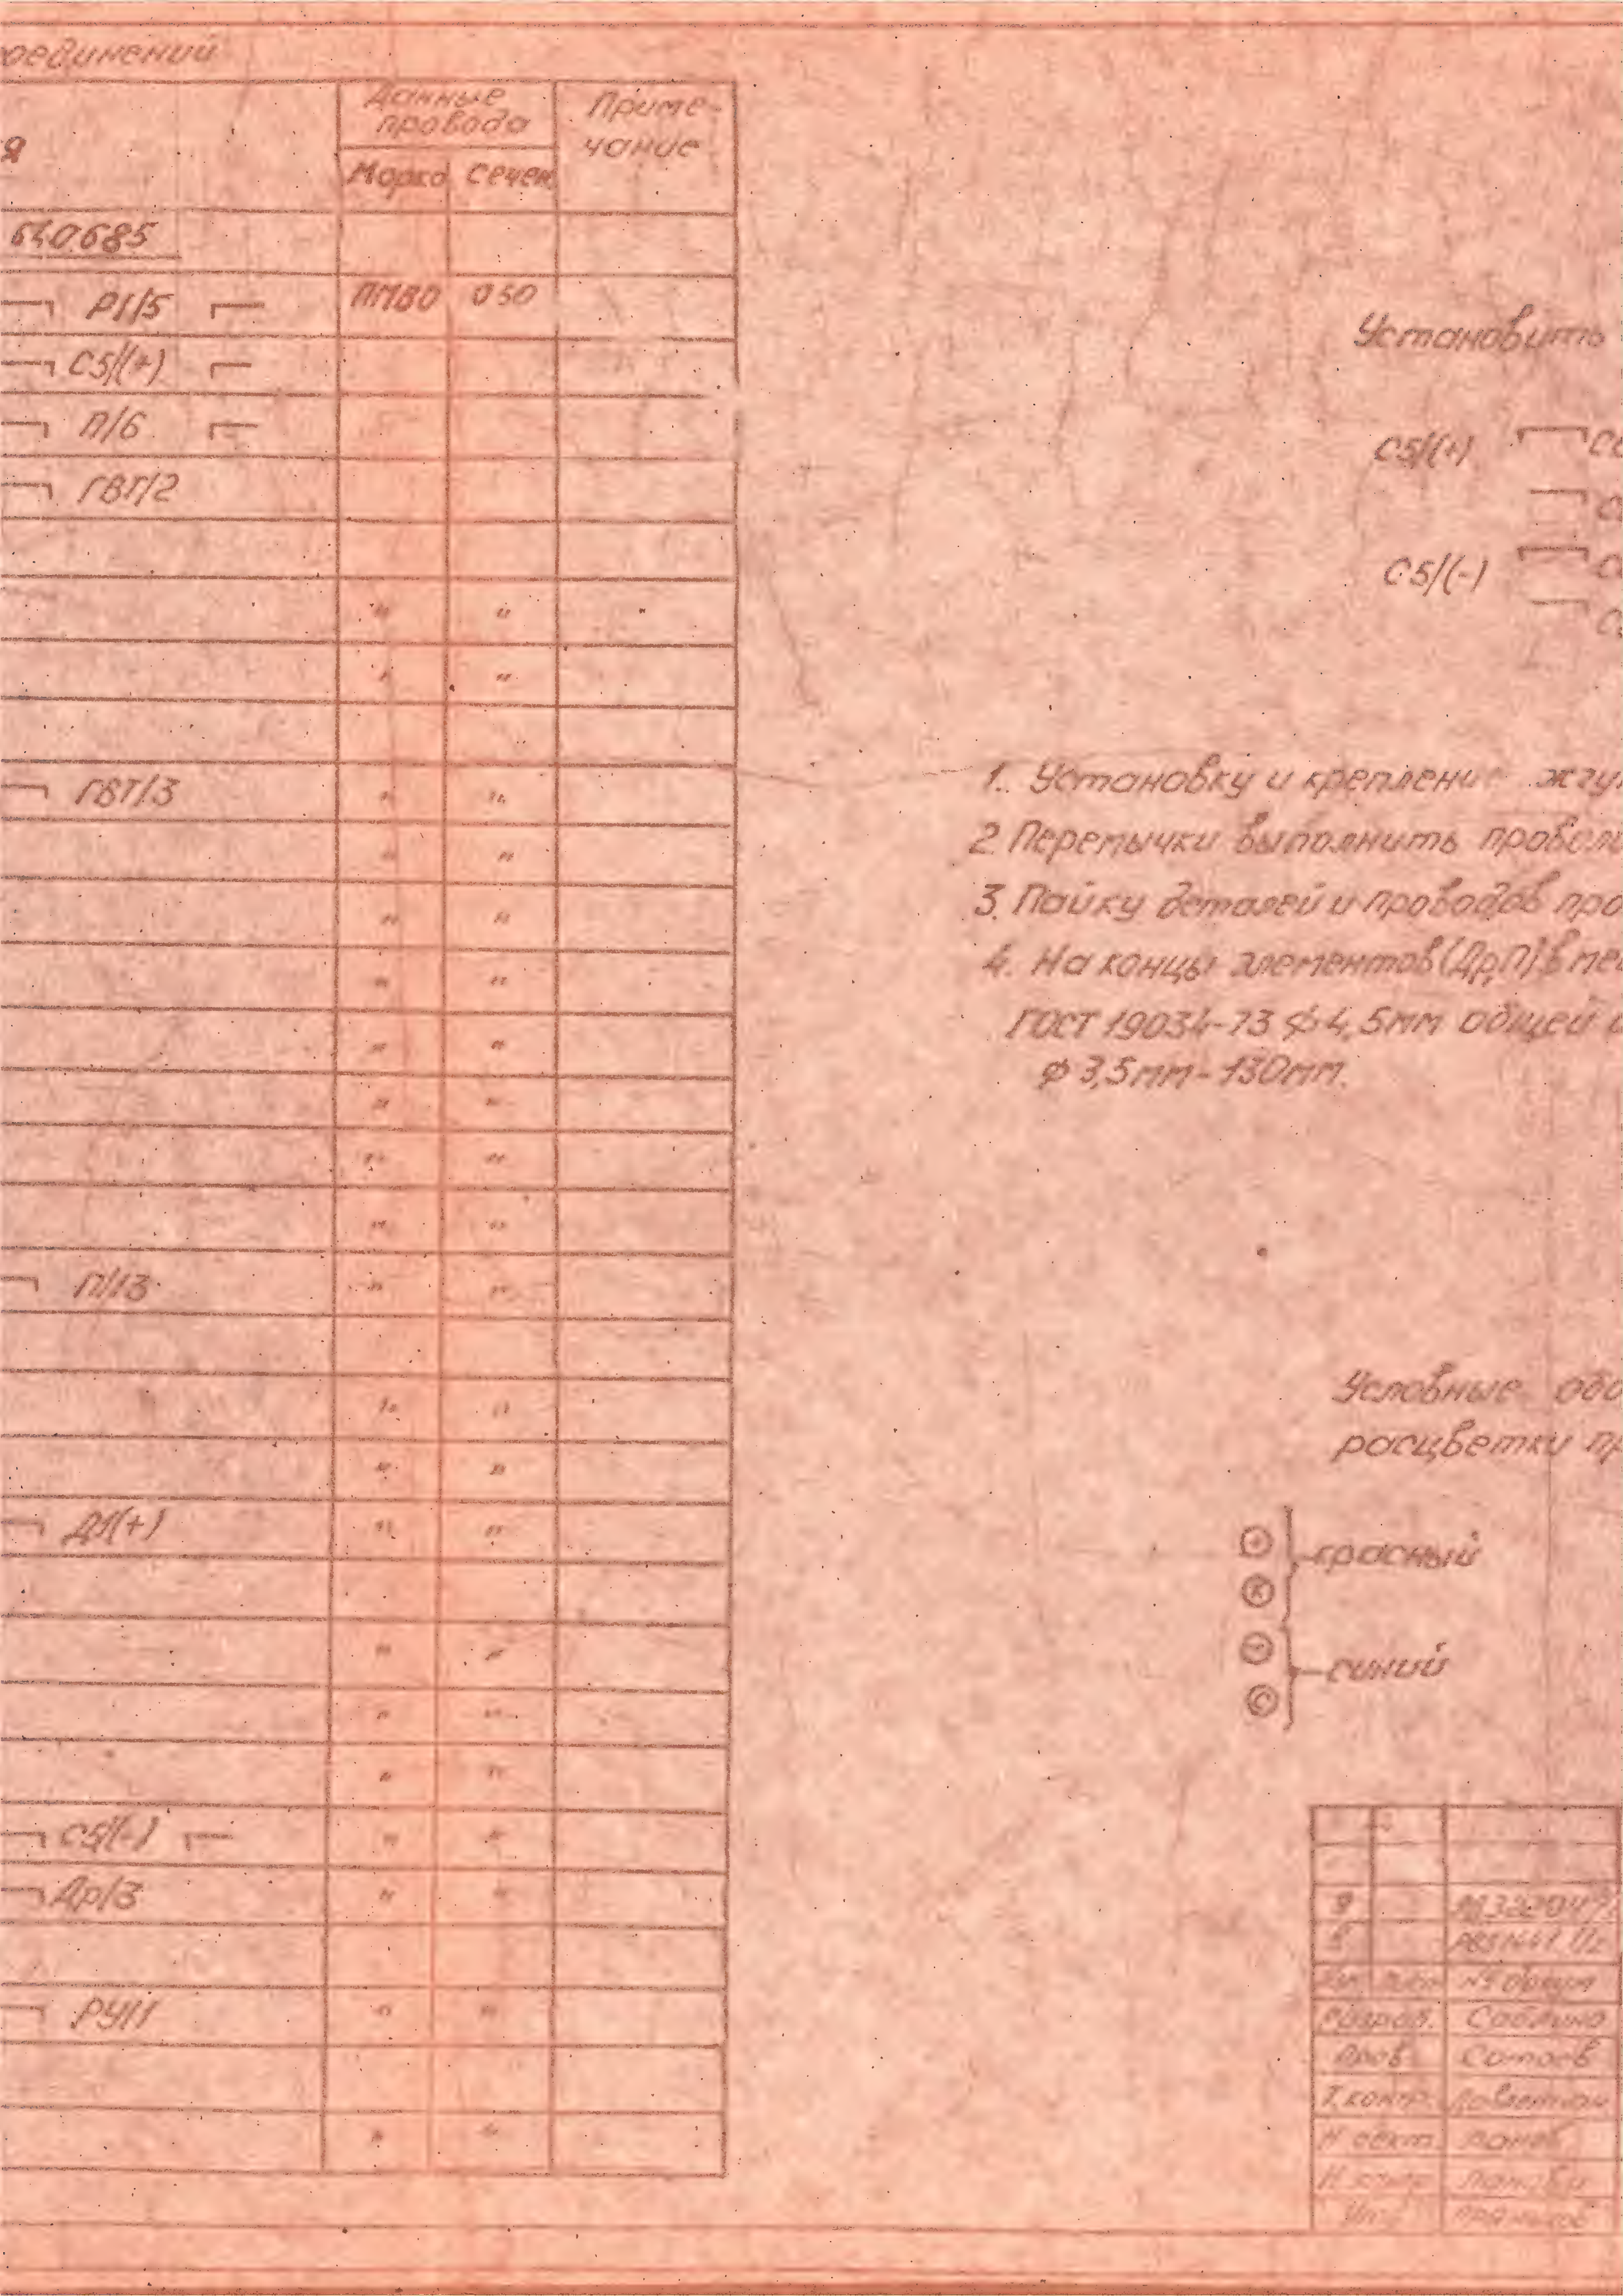 оединений
Данные
провода
Приме-
чание
я
Марка Сечен
640.685
Р1/5 ПМВО 050
С5/(+)
П/6
ГВТ/2
" "
" "
ГВТ/3 " "
" "
" "
" "
" "
" "
" "
" "
П/13 " "
" "
" "
Д1(+) " "
" "
" "
" "
С5/(-) " "
Др/3 " "
РУ/1 " "
" "
Установить
С5/(+)
С5/(-)
1. Установку и креплени жгу
2. Перемычки выполнить провол
3. Пайку деталей и проводов про
4. На концы элементов (Др,П) в ме
ГОСТ 19034-73 ф 4,5мм общей
ф 3,5мм-130мм.
Условные обо
расцветки пр
+
К
красный
-
С
синий
9
№ докум
Разраб. Саблина
Пров. Сотаев
Т.контр.
Н контр
Утв